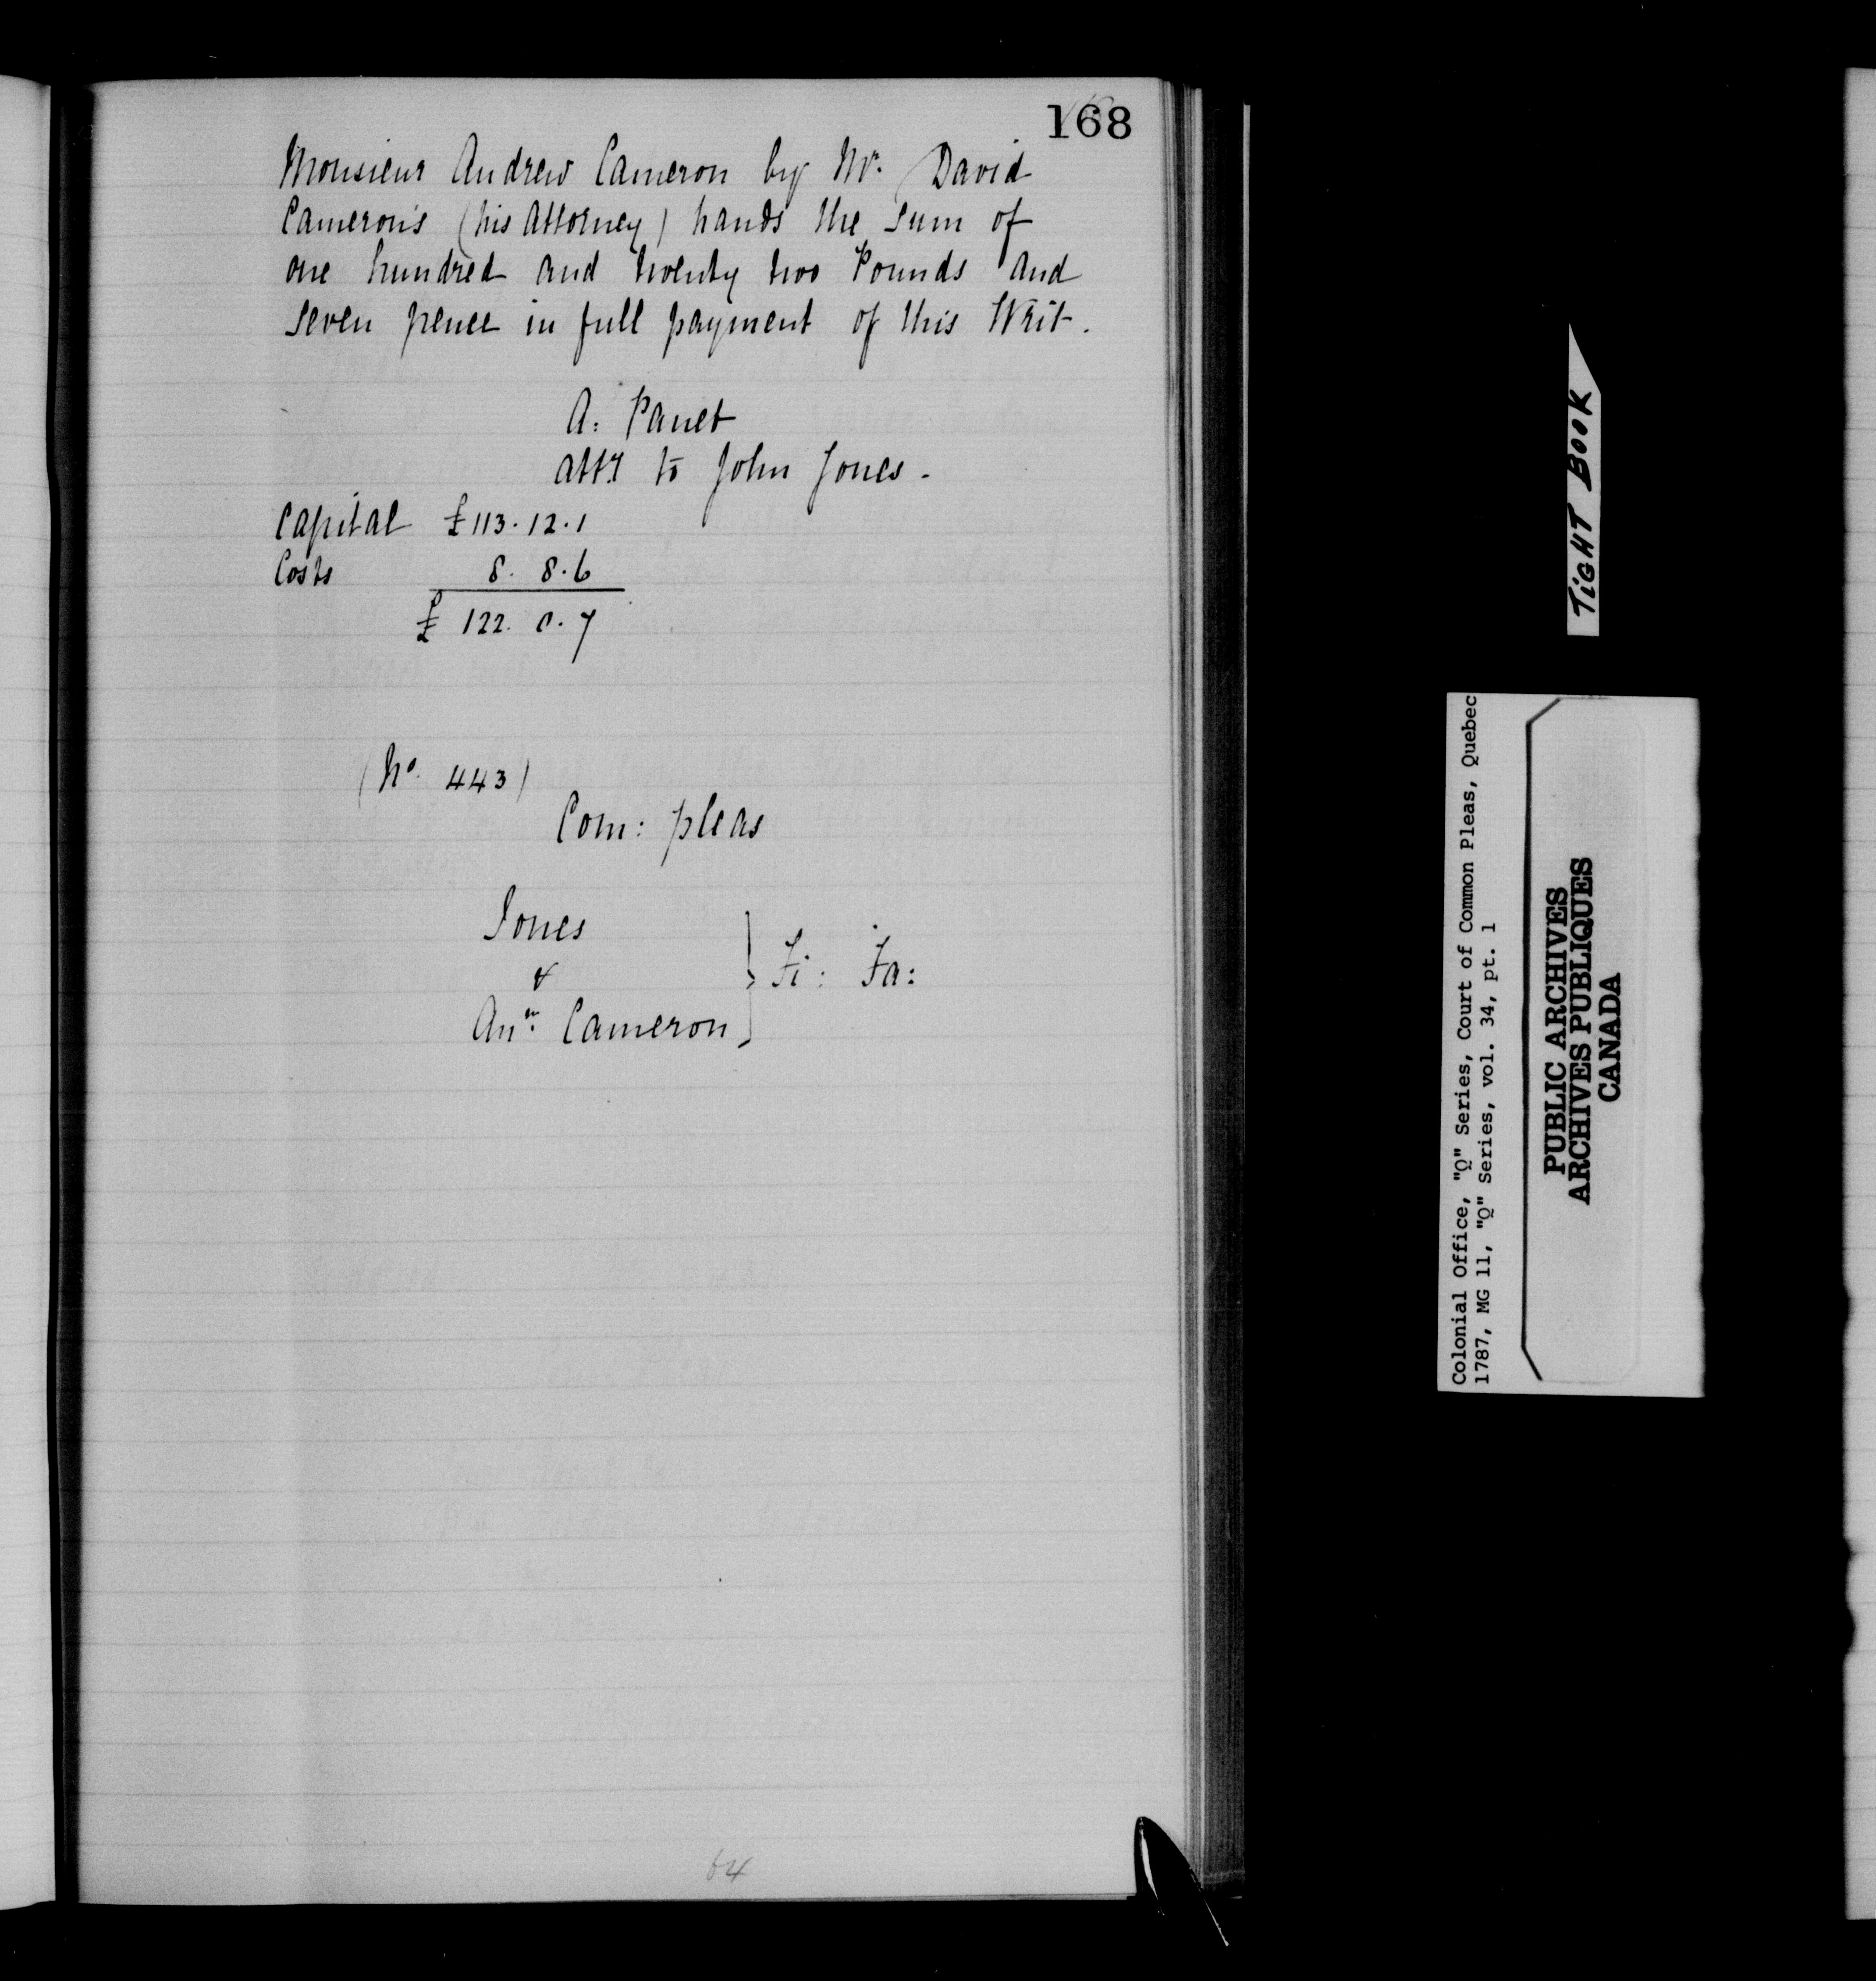 168
Monsieur Andrew Cameron by Mr. David
Cameron's (his Attorney) hands the sum of
one hundred and twenty two Pounds and
seven pence in full payment of this Writ.
A: Panet
atty to John Jones.
Capital £113.12.1
Costs 8. 8.6
£ 122. 0. 7
(No. 443)
Com: pleas
Jones
&
Anw. Cameron } Fi: Fa:
64
TIGHT BOOK
Colonial Office, "Q" Series, Court of Common Pleas, Quebec
1787, MG 11, "Q" Series, vol. 34, pt. 1
PUBLIC ARCHIVES
ARCHIVES PUBLIQUES
CANADA